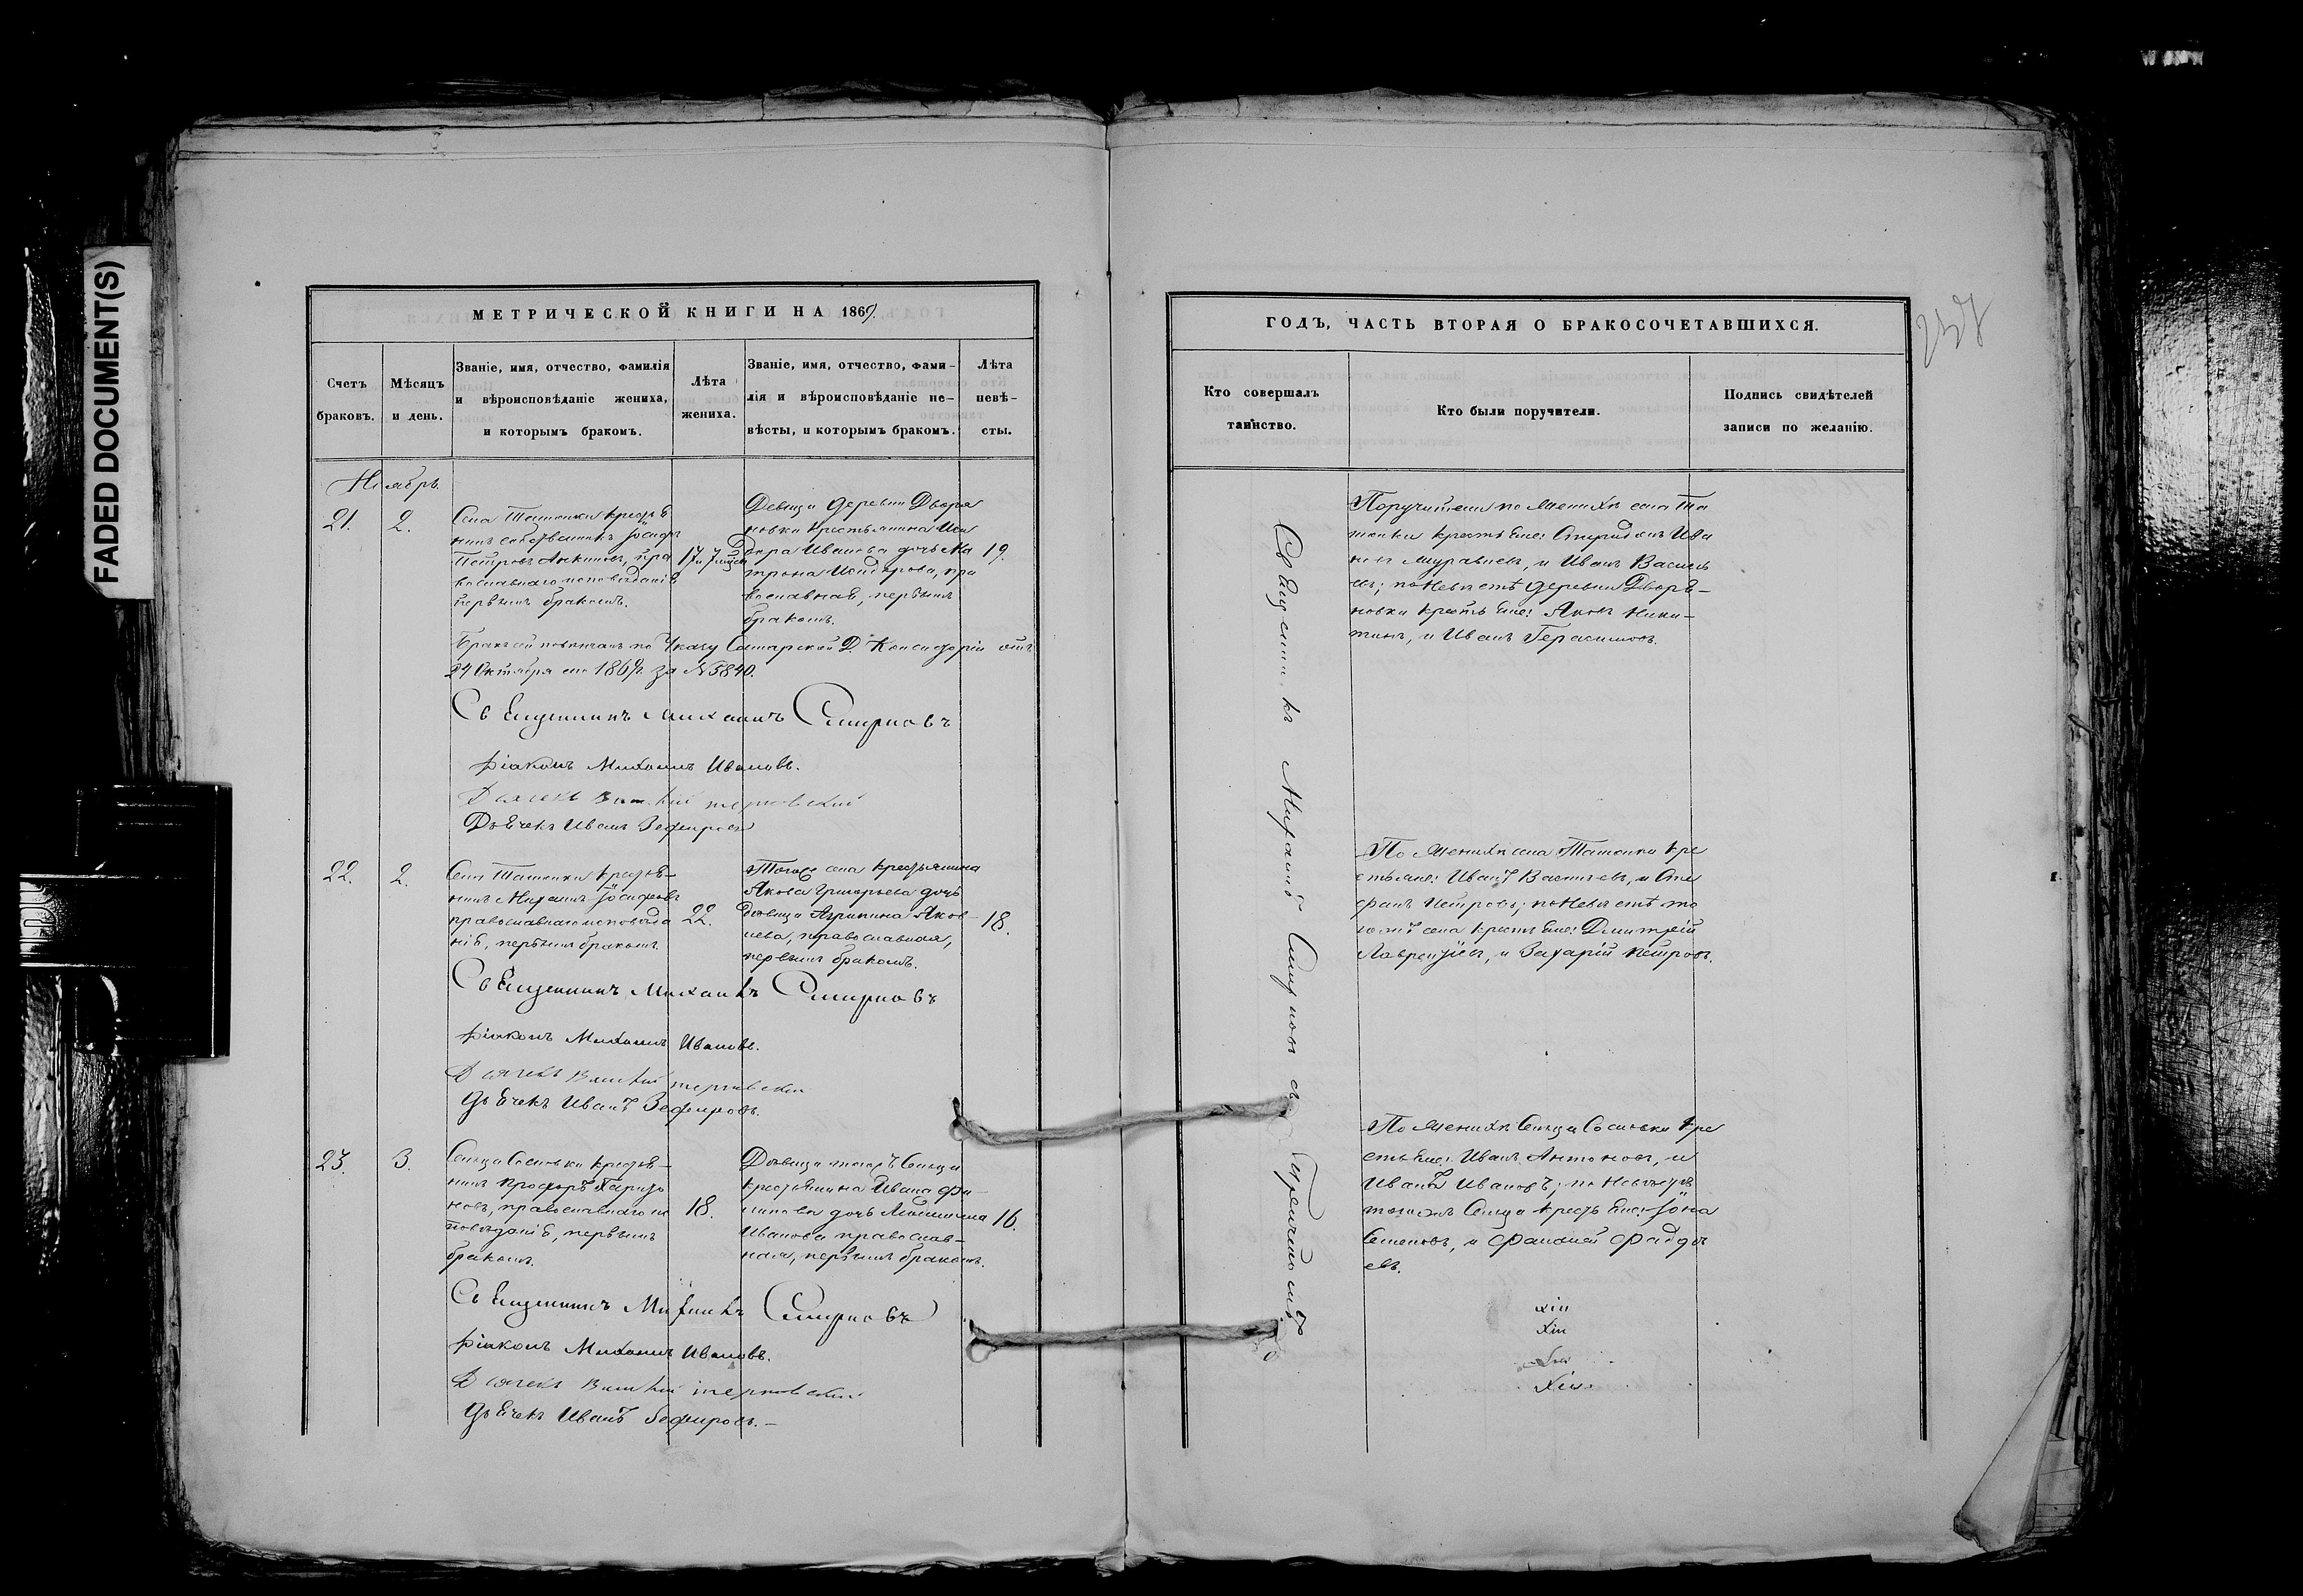 FADED DOCUMENT(S)
МЕТРИЧЕСКОЙ КНИГИ НА 1869.
Счетъ браковъ.
Мѣсяцъ и день.
Званіе, имя, отчество, фамилія
и вѣроисповѣданіе жениха,
и которымъ бракомъ.
Лѣта жениха.
Званіе, имя, отчество, фами-
лія и вѣроисповѣданіе не-
вѣсты, и которымъ бракомъ.
Лѣта невѣ-
сты.
Ноябрь.
21. 2.
Села Ташолки крестья
нинъ собственникъ Іосифъ
Петровъ пра
вославнаго исповѣданія
первымъ бракомъ.
17 и 7 мѣсяц
Девица деревни Дворя
новки крестьянина Иси
дора Иванова дочь Ма
трона Исидорова, пра
вославная, первымъ
бракомъ.
19.
Бракъ сей повѣнчанъ по Указу Самарской Д. Консисторіи отъ
24 Октября сего 1869г. за №5840.
Священникъ Михаилъ Смирновъ
Діаконъ Михаилъ Ивановъ.
Дьячекъ
Дьячекъ Иванъ Зефировъ
22. 2.
Села Ташолки крестья-
нинъ Михаилъ Іосифовъ
православнаго исповѣда
нія, первымъ бракомъ
22.
Тогоже села крестьянина
Якова Григорьева дочь
девица Агрипина Яков-
лева, православная,
первымъ бракомъ.
18.
Священникъ Михаилъ Смирновъ
Діаконъ Михаилъ Ивановъ.
Дьячекъ
Дьячекъ Иванъ Зефировъ.
23. 3.
Сельца Сосновки крестья-
нинъ Харито
новъ, православнаго ис
повѣданія, первымъ
бракомъ.
18.
Девица тогожъ Сельца
крестьянина Ивана Фи-
липова дочь
Иванова православ-
ная, первымъ бракомъ.
16.
Священникъ Михаилъ Смирновъ
Діаконъ Михаилъ Ивановъ.
Дьячекъ
Дьячекъ Иванъ Зефировъ.-
ГОДЪ, ЧАСТЬ ВТОРАЯ О БРАКОСОЧЕТАВШИХСЯ.
257
Кто совершалъ
таинство.
Кто были поручители.
Подпись свидѣтелей
записи по желанію.
Священникъ Михаилъ Смирновъ съ Причтомъ
Поручители по женихѣ села Та
шолки крестьяне: Спиридонъ Ива
новъ Муравлевъ, и Иванъ Василь
евъ; по невѣстѣ деревни Дворя-
новки крестьяне: Яковъ Ники-
тинъ, и Иванъ Герасимовъ.
По женихѣ села Ташолки кре
стьяне: Иванъ Васильевъ, и Сте
фанъ Петровъ; по невѣстѣ то
гожъ села крестьяне: Димитрій
Лаврентіевъ, и Захарій Петровъ.
По женихѣ Сельца Сосновки кре
стьяне: Иванъ Антоновъ, и
Иванъ Ивановъ; по невѣстѣ
тогожъ Сельца крестьяне: Іона
Семеновъ, и Фаддѣ
евъ.